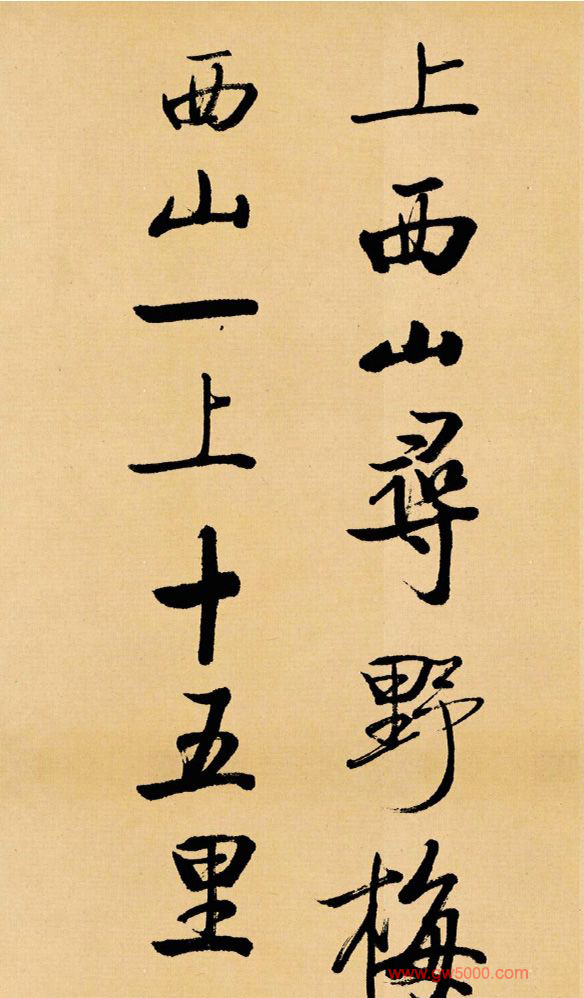 上西山尋野梅
西山一上十五里
www.gw5000.com